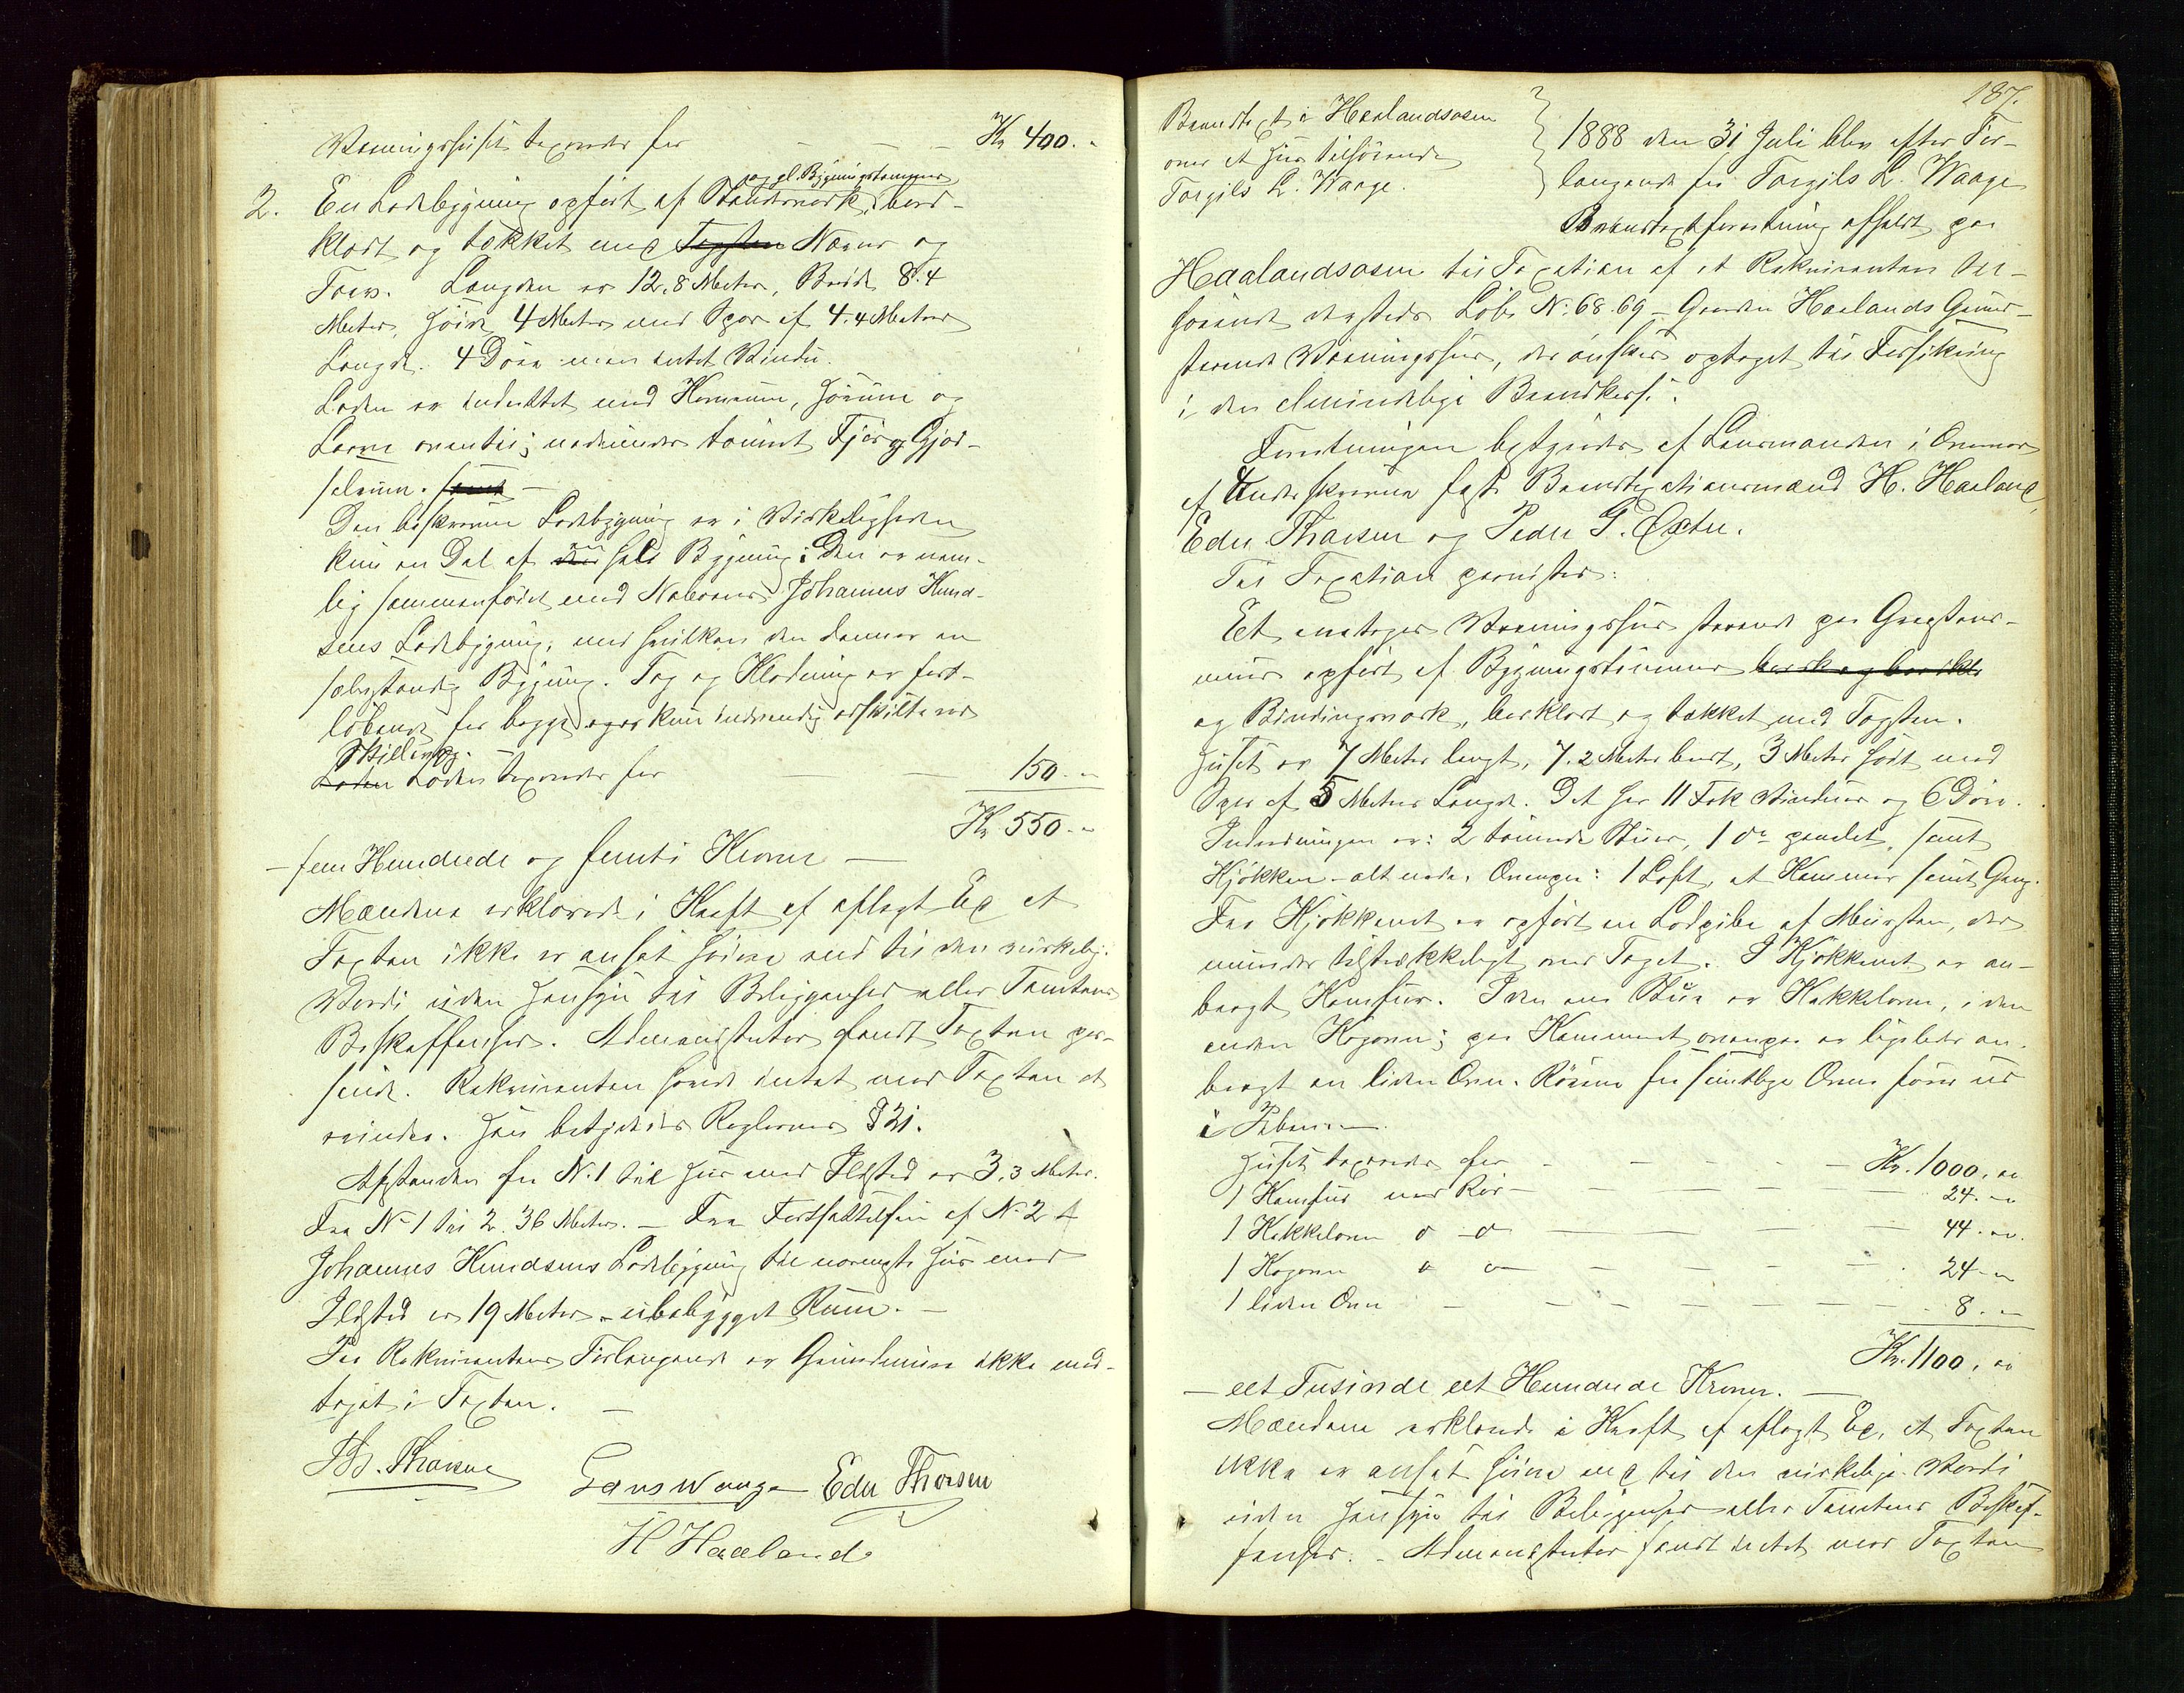 Vaaningshuset taxeredes for — — — Kr 400. "
og gl. Bygningstømmer
2. En Ladebygning opført af Standerværk, bord-
klædt og tækket med Tagsten Næver og
Torv. Længden er 12.8 Meter, Bredde 8.4
Meter, Høide 4 Meter med Spær af 4.4 Meters
Længde. 4 Døre men intet Vindu.
Laden er indrettet med Kornrum, Hørum og
Laave oventil; nedunder tømret Fjøs og Gjød-
selrum. samt —
Den beskrevne Ladebygning er i Virkeligheden
kun en Del af den hele Bygning: Den er nem-
lig sammenføiet med Naboens Johannes Knud-
sens Ladebygning, med hvilken den danner en
selvstændig Bygning. Tag og Klædning er fort-
løbende for begge og er kun indvendig adskilte ved
Skillevæg.
Laden Laden taxeredes for — — 150 - "
Kr 550 - "
— fem Hundrede og femti Kroner —
Mændene erklærede i Kraft af aflagt Ed at
Taxten ikke er ansat høiere end til den virkelig.
Værdi uden Hensyn til Beliggenhed eller Tomtens
Beskaffenhed. Administrator fandt Taxten pas-
sende. Rekvirenten havde intet mod Taxten at
erindre. Han betydedes Reglernes § 31.
Afstanden fra N. 1 til Hus med Ildsted er 3.3 Meter.
Fra N 1 til 2. 36 Meter. — Fra Fortsættelsen af N 2
Johannes Knudsens Ladebygning til nærmeste Hus med
Ildsted er 19 Meter - ubebygget Rum. —
Paa Rekvirentens Forlangende er Grundmuren ikke med-
taget i Taxten. —
Th. Thorsen Lars Waage Edu Thorsen
H Haaland
187.
Brandtaxt i Haalandsosen
over et Hus tilhørende
Torgils L. Waage.
1888 den 31 Juli blev efter For-
langende fra Torgils L. Waage
Brandtaxtforretning afholdt paa
Haalandsosen til Taxation af et Rekvirenten til-
hørende dersteds Løbe N: 68.69 - Gaarden Haalands Grund-
staaende Vaaningshus, der ønskes optaget til Forsikring
i den almindelige Brandkasse.
Forretningen betjentes af Lensmanden i Overvær
af Underskrevne faste Brandtaxationsmænd H. Haaland,
Edu Thorsen og Peder P. Østre.
Til Taxation paavistes:
Et enetages Vaaningshus staaende paa Graastens-
mur opført af Bygningstømmer
og Bindingsværk, borklædt og tækket med Tagsten.
Huset er 7 Meter langt, 7.2 Meter bredt, 3 Meter høit med
Spær af 5 Meters Længde. Det har 11 Fak Vinduer og 6 Døre.
Indredningen er: 2 tømrede Stuer, 1 do panelet, samt
Kjøkken - alt nede. Ovenpaa: 1 Loft, et Kammer samt Gang.
Fra Kjøkkenet er opført en Lodpibe af Mursten, der
munder tilstrækkeligt over Taget. I Kjøkkenet er an-
bragt Komfur. I den ene Stue er Kakkelovn, i den
anden Kogovn; paa Kammeret ovenpaa er ligeledes an-
bragt en liden Ovn. Rørene fra samtlige Ovne føres ud
i Piben. —
Huset taxeredes for — — — — Kr. 1000. "
1 Komfur med Rør — — — — 24. "
1 Kakkelovn do do — — — 44. "
1 Kogovn do do — — — — 24 - "
1 liden Ovn — — — — — 8. "
Kr. 1100. "
— eet Tusinde eet Hundrede Kroner. —
Mændene erklærede i Kraft af aflagt Ed, at Taxten
ikke er ansat høiere end til den virkelige Værdi
uden Hensyn til Beliggenhed eller Tomtens Beskaf-
fenhed. - Administrator fandt intet mod Taxten